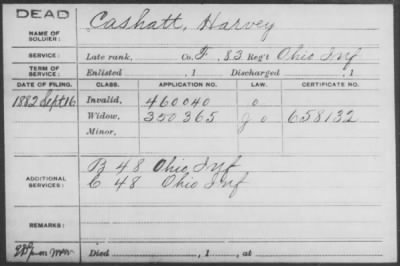 DEAD
NAME OF SOLDIER: Cashatt, Harvey
SERVICE: Late rank, Co. F, 83 Reg't Ohio Inf
TERM OF SERVICE: Enlisted , 1 Discharged , 1
DATE OF FILING. CLASS. APPLICATION NO. LAW. CERTIFICATE NO.
1882 Sept 16 Invalid, 460040
Widow, 350365 658132
Minor,
ADDITIONAL SERVICES: B 48 Ohio Inf
C 48 Ohio Inf
REMARKS:
Died , 1 , at